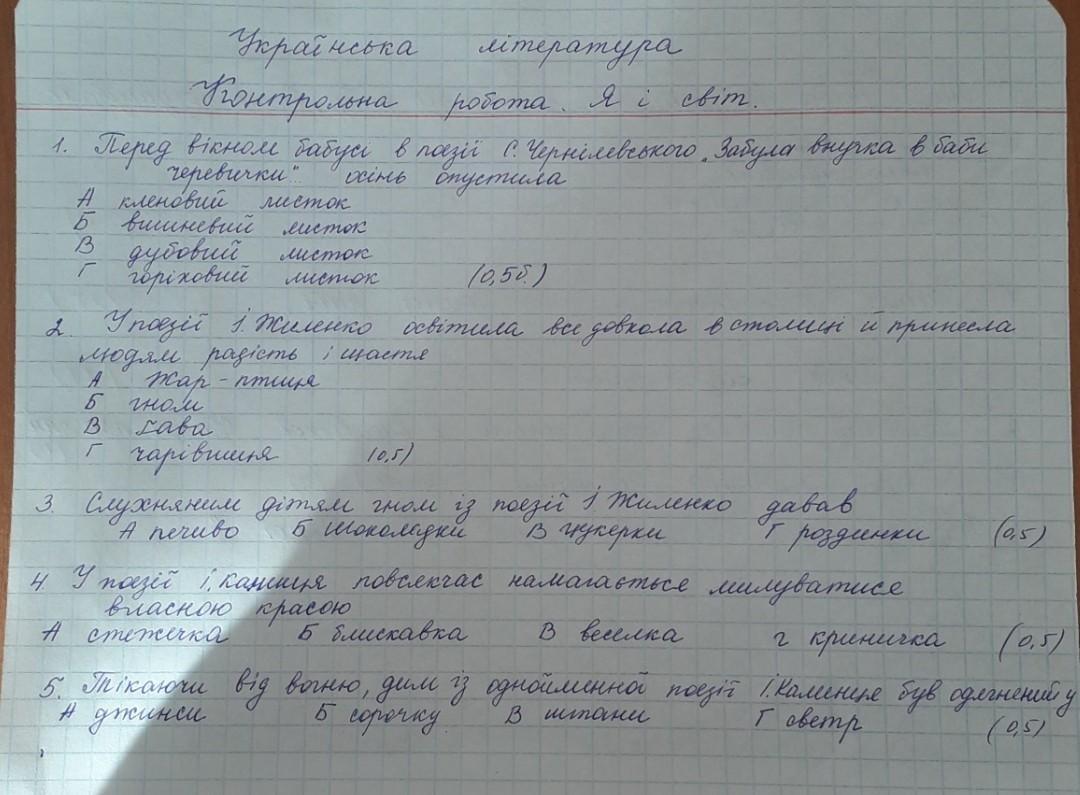 Українська література
Контрольна робота. Я і світ.
1. Перед вікном бабусі в поезії С. Чернілевського „Забула внучка в баби
черевички“ осінь опустила
А кленовий листок
Б вишневий листок
В дубовий листок
Г горіховий листок (0,5б.)
2. У поезії І. Жиленко освітила все довкола в столиці й принесла
людям радість і щастя
А Жар-птиця
Б гном
В Гава
Г чарівниця (0,5)
3. Слухняним дітям гном із поезії І Жиленко давав
А печиво Б шоколадки В цукерки Г родзинки (0,5)
4. У поезії І. Калинця повсякчас намагається милуватися
власною красою
А стежечка Б блискавка В веселка г криничка (0,5)
5. Тікаючи від вогню, дим із однойменної поезії І. Калинця був одягнений у
А джинси Б сорочку В штани Г светр (0,5)